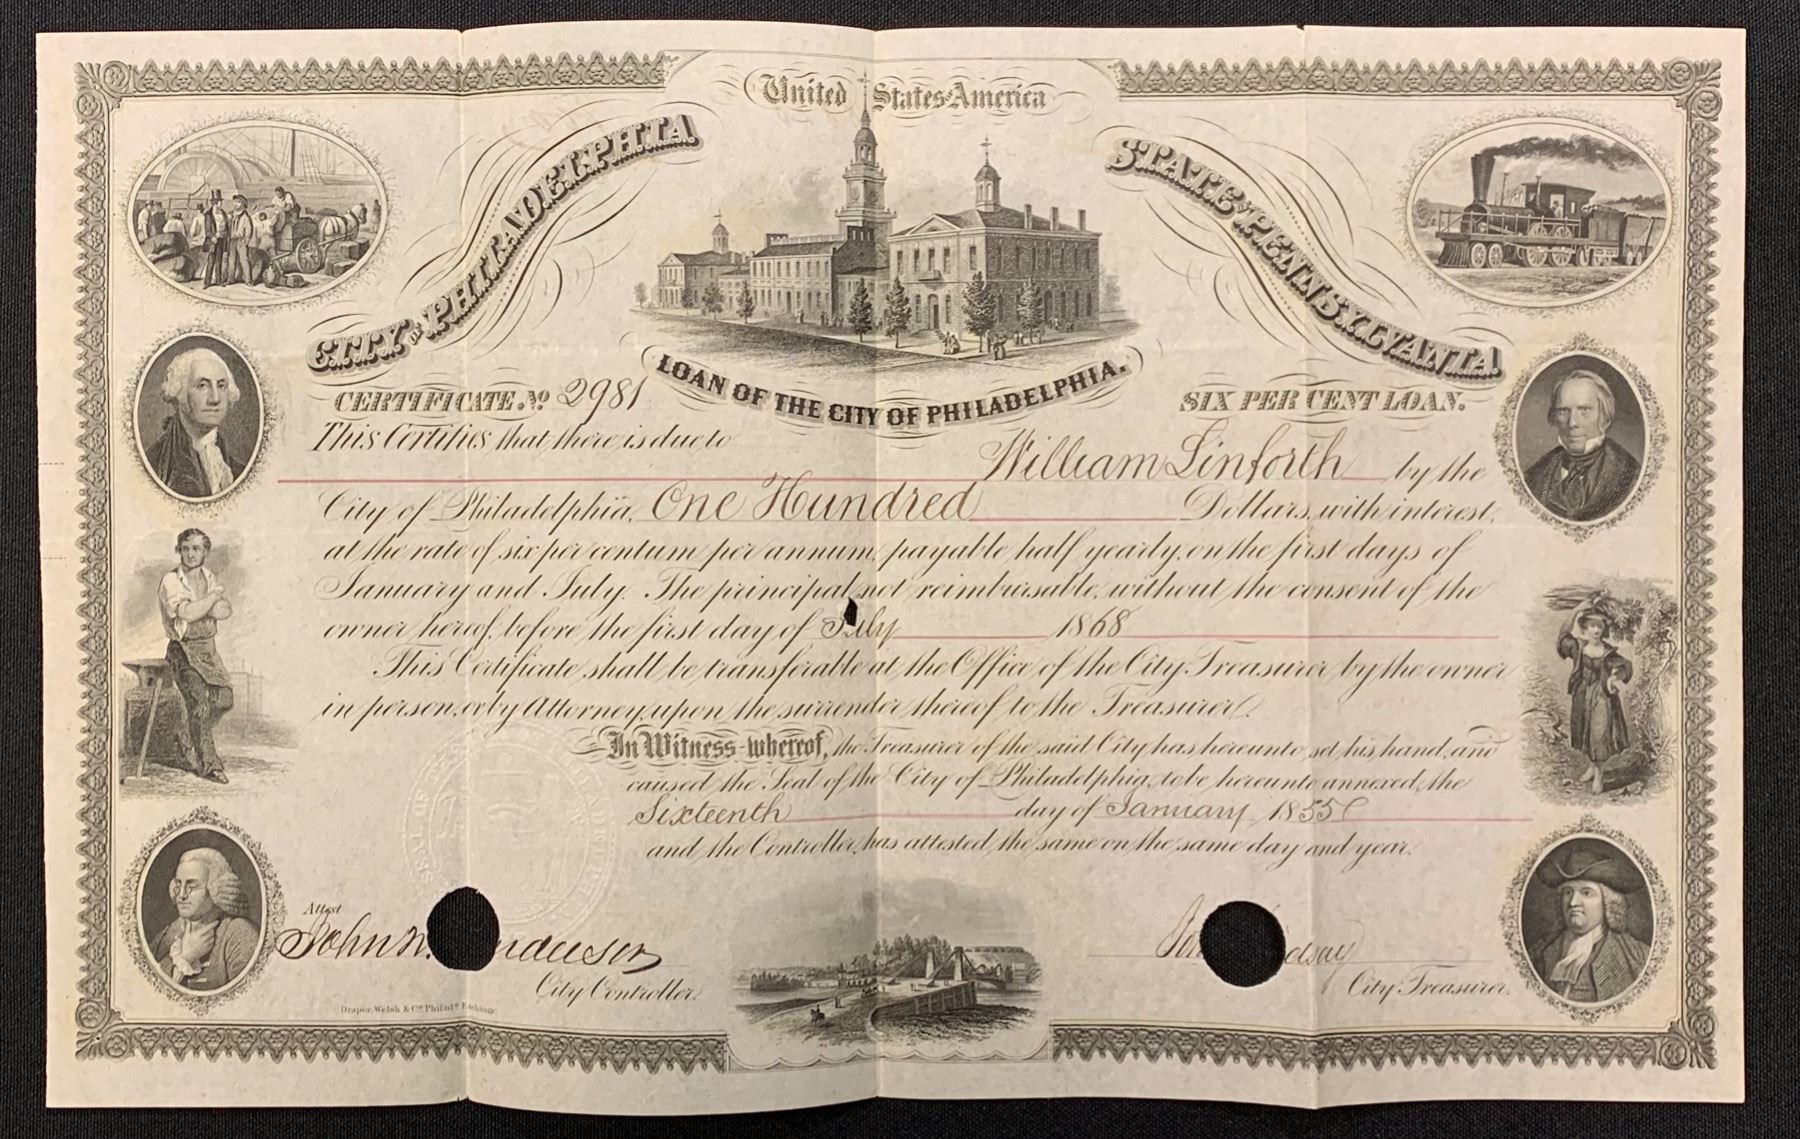 United States America
CITY OF PHILADELPHIA
STATE OF PENNSYLVANIA.
LOAN OF THE CITY OF PHILADELPHIA.
CERTIFICATE No 2981
SIX PER CENT LOAN.
This Certifies that there is due to
William Linforth by the
City of Philadelphia, One Hundred Dollars, with interest,
at the rate of six per centum per annum, payable half yearly, on the first days of
January and July. The principal not reimbursable, without the consent of the
owner hereof, before the first day of July 1868
This Certificate shall be transferable at the Office of the City Treasurer, by the owner
in person, or by Attorney, upon the surrender thereof to the Treasurer.
In Witness whereof, the Treasurer of the said City has hereunto set his hand, and
caused the Seal of the City of Philadelphia, to be hereunto annexed, the
Sixteenth day of January 1855
and the Controller has attested the same on the same day and year.
SEAL OF
Attest
John N.
City Controller.
City Treasurer.
Draper, Welsh & Co Philada Exchange